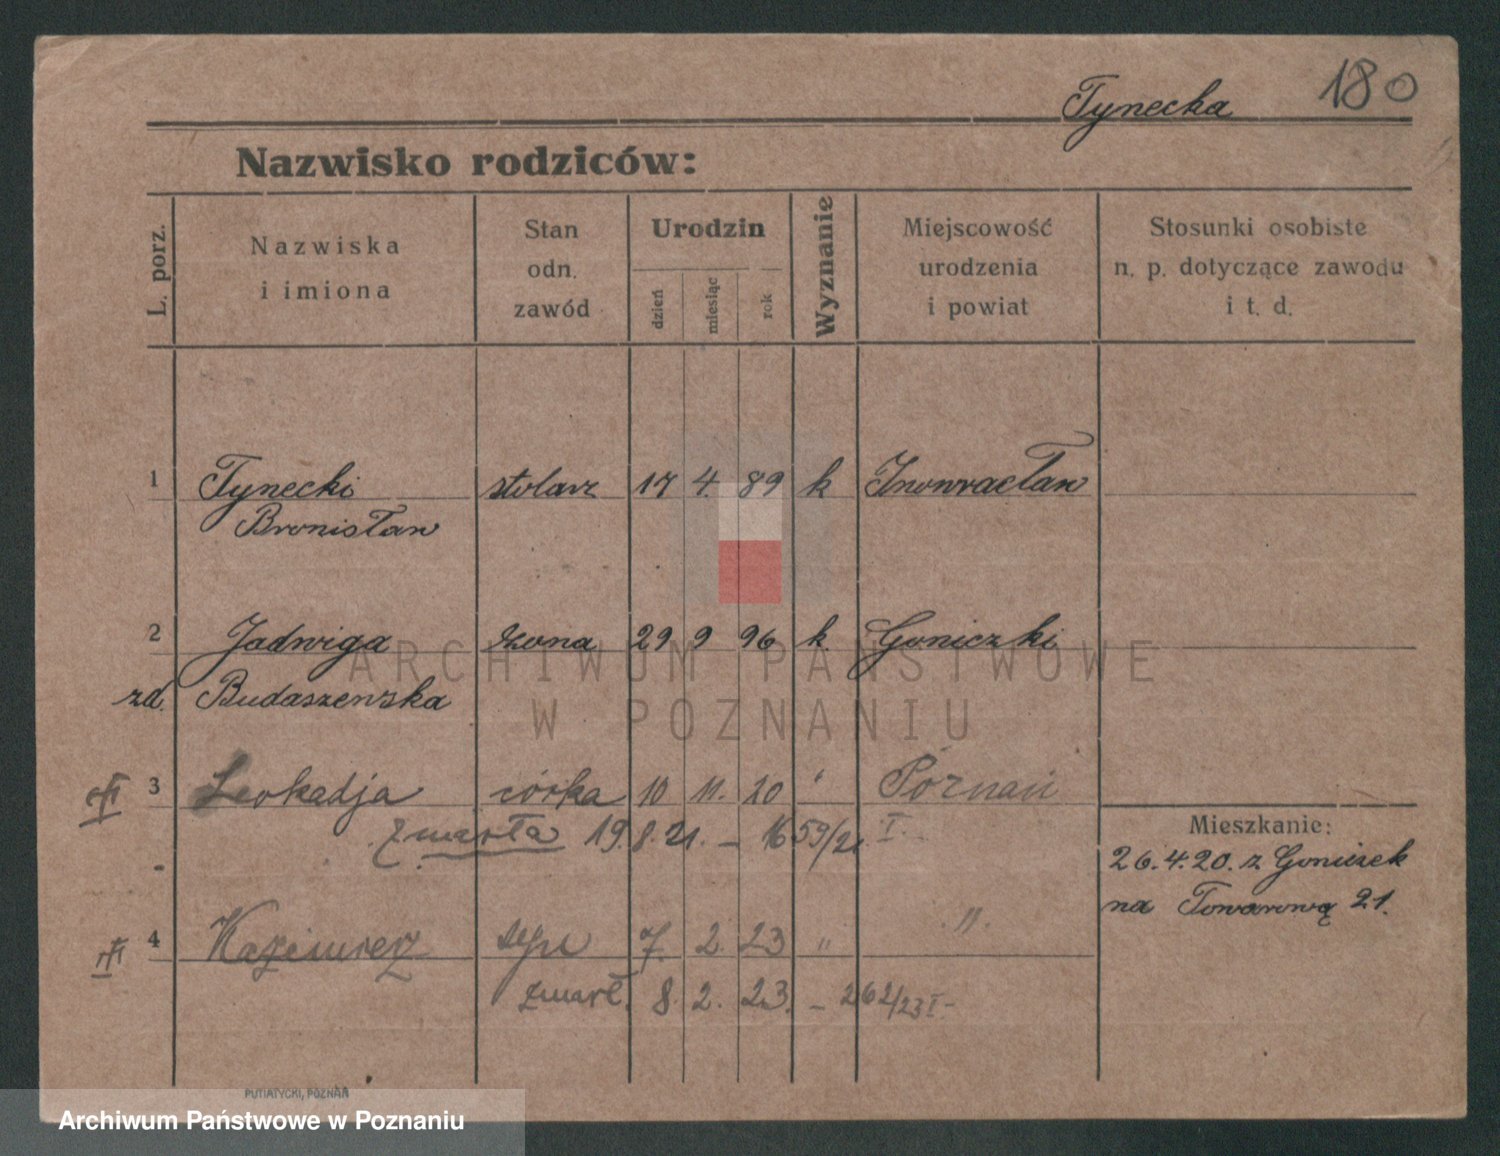 Tynecka 180
Nazwisko rodziców:
L. porz.
Nazwiska
i imiona
Stan
odn.
zawód
Urodzin
dzień
miesiąc
rok
Wyznanie
Miejscowość
urodzenia
i powiat
Stosunki osobiste
n. p. dotyczące zawodu
i t. d.
1 Tynecki stolarz 17 4. 89 k Inowracław
Bronisław
2 Jadwiga żona 29 9 96 k. Goniczki
zd. Budaszewska
3 Leokadja córka 10 11. 20 " Poznań
zmarła 19.8.21. – 1659/21 I.
Mieszkanie:
26.4.20. z Goniczek
na Towarową 21.
4 Kazimierz syn 7. 2. 23 " ".
zmarł. 8. 2. 23. – 262/23 I –
ARCHIWUM PAŃSTWOWE
W POZNANIU
PUTIATYCKI, POZNAŃ
Archiwum Państwowe w Poznaniu